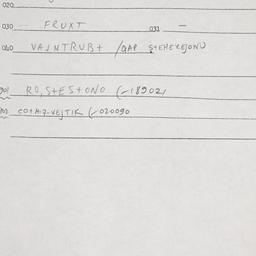 020
030 FRUXT 031 —
040 VAJNTRUBT /QAP STEHEKEJONU
901 RO,STESTONO (-189021
902 COTAZ-VEJTIK (-020090